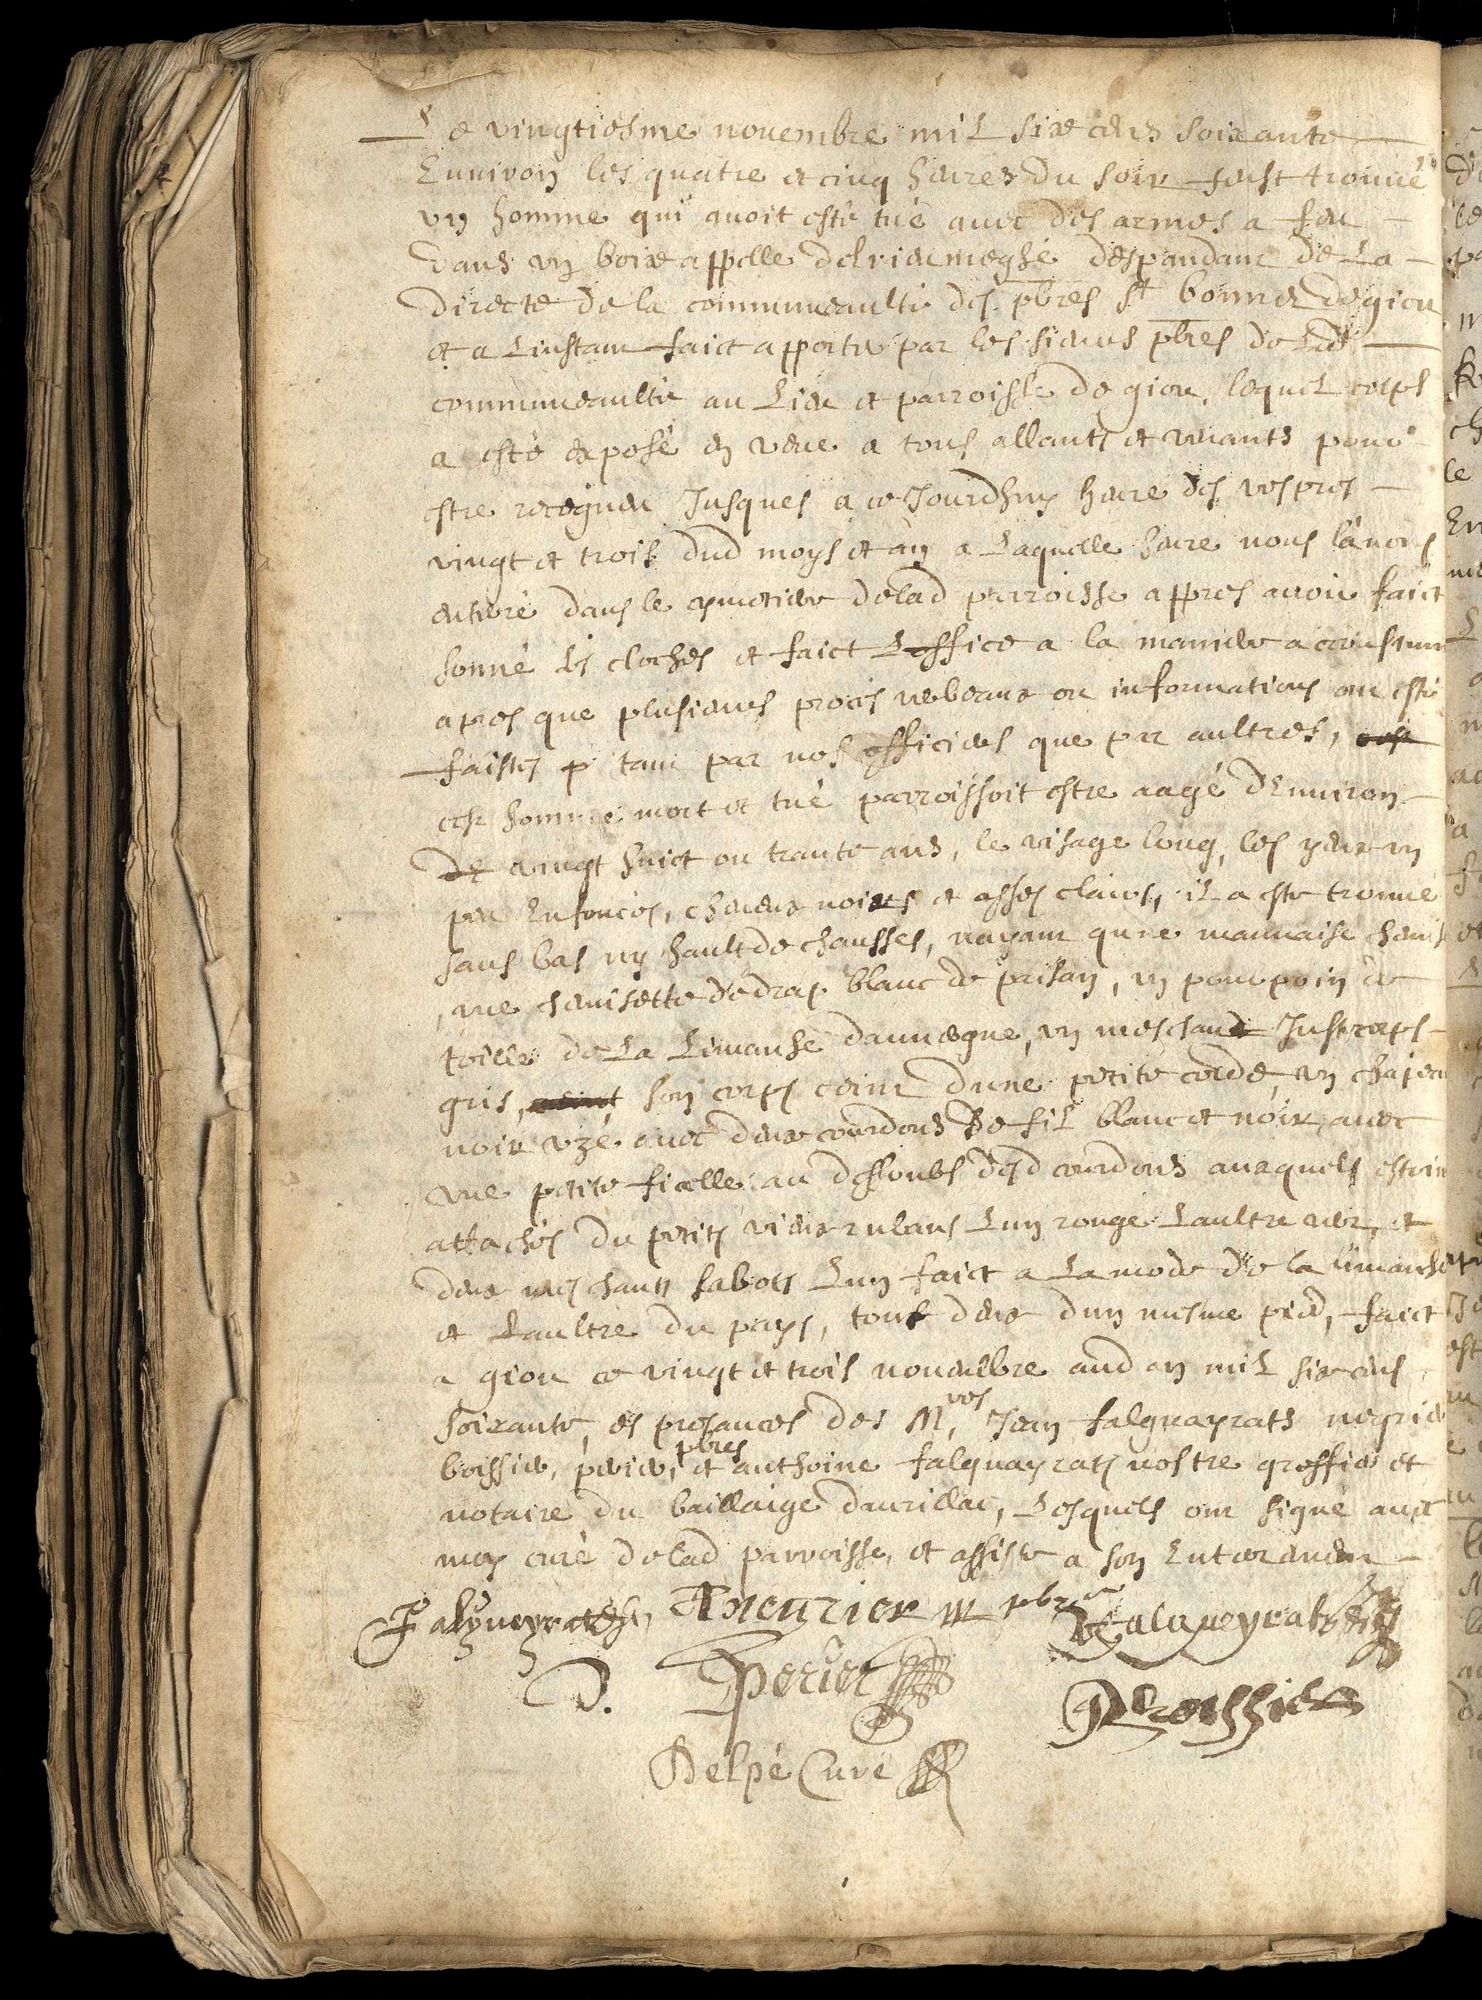 Le vingtiesme novembre mil six cens soixante
Environ les quatre et cinq heures du soir feust trouvé
un homme qui avoit esté tué avec des armes a feu
dans un boix appellé del rieumeghé despandant de la
directe de la communeaulté des pbres St bonnet de giou
et a l'instant faict apporter par les sieurs pbres de lad
communeaulté au lieu et parroisse de giou, lequel corps
a esté exposé en veue a tous allants et venants pour
estre recogneu jusques a ce jourdhuy heure des vespres
vingt et trois dud moys et an a laquelle heure nous l'avons
enterré dans le cymetiere de lad parroisse appres avoir faict
sonné les cloches et faict l'office a la maniere acoustumé
apres que plusieurs procés verbeaux ou informations ont esté
faistes p tant par nos officiers que par aultres,
cest homme mort et tué parroissoit estre aagé d'environ
de vingt huict ou trante ans, le visage long, les yeux un
peu enfoncés, cheveux noirs et assés clairs, il a esté trouvé
sans bas ny hault de chausses, n'ayant qune mauvaise chemise
, une chemisette de drap blanc de paisan, un pourpoin de
toille de la Limanhe dauvergne, un meschant justecorps
gris, son corps ceint d'une petite corde, un chapeau
noir uzé avec deux courdons de fil blanc et noir, avec
une petite ficelle au dessoubs desd courdons auxquels estoint
attachés du petits vieux rubans l'un rouge l'aultre ver, et
deux meschants sabots l'un faict a la mode de la limanhe
et l'aultre du pays, tous deux d'un mesme pied, faict
a giou ce vingt et trois novembre aud an mil six cens
soixante, es presances des Mres Jean falgueyrats meyrier
boissier, perier, pbres et anthoine falgueyrats nostre greffier et
notaire du bailliaige d'aurillac, lesquels ont signé avec
moy curé de lad parroisse, et assisté a son enterrement
Falgueyrats
pbre
Falgueyrats
D. Perier
Boissier
Delpé Curé